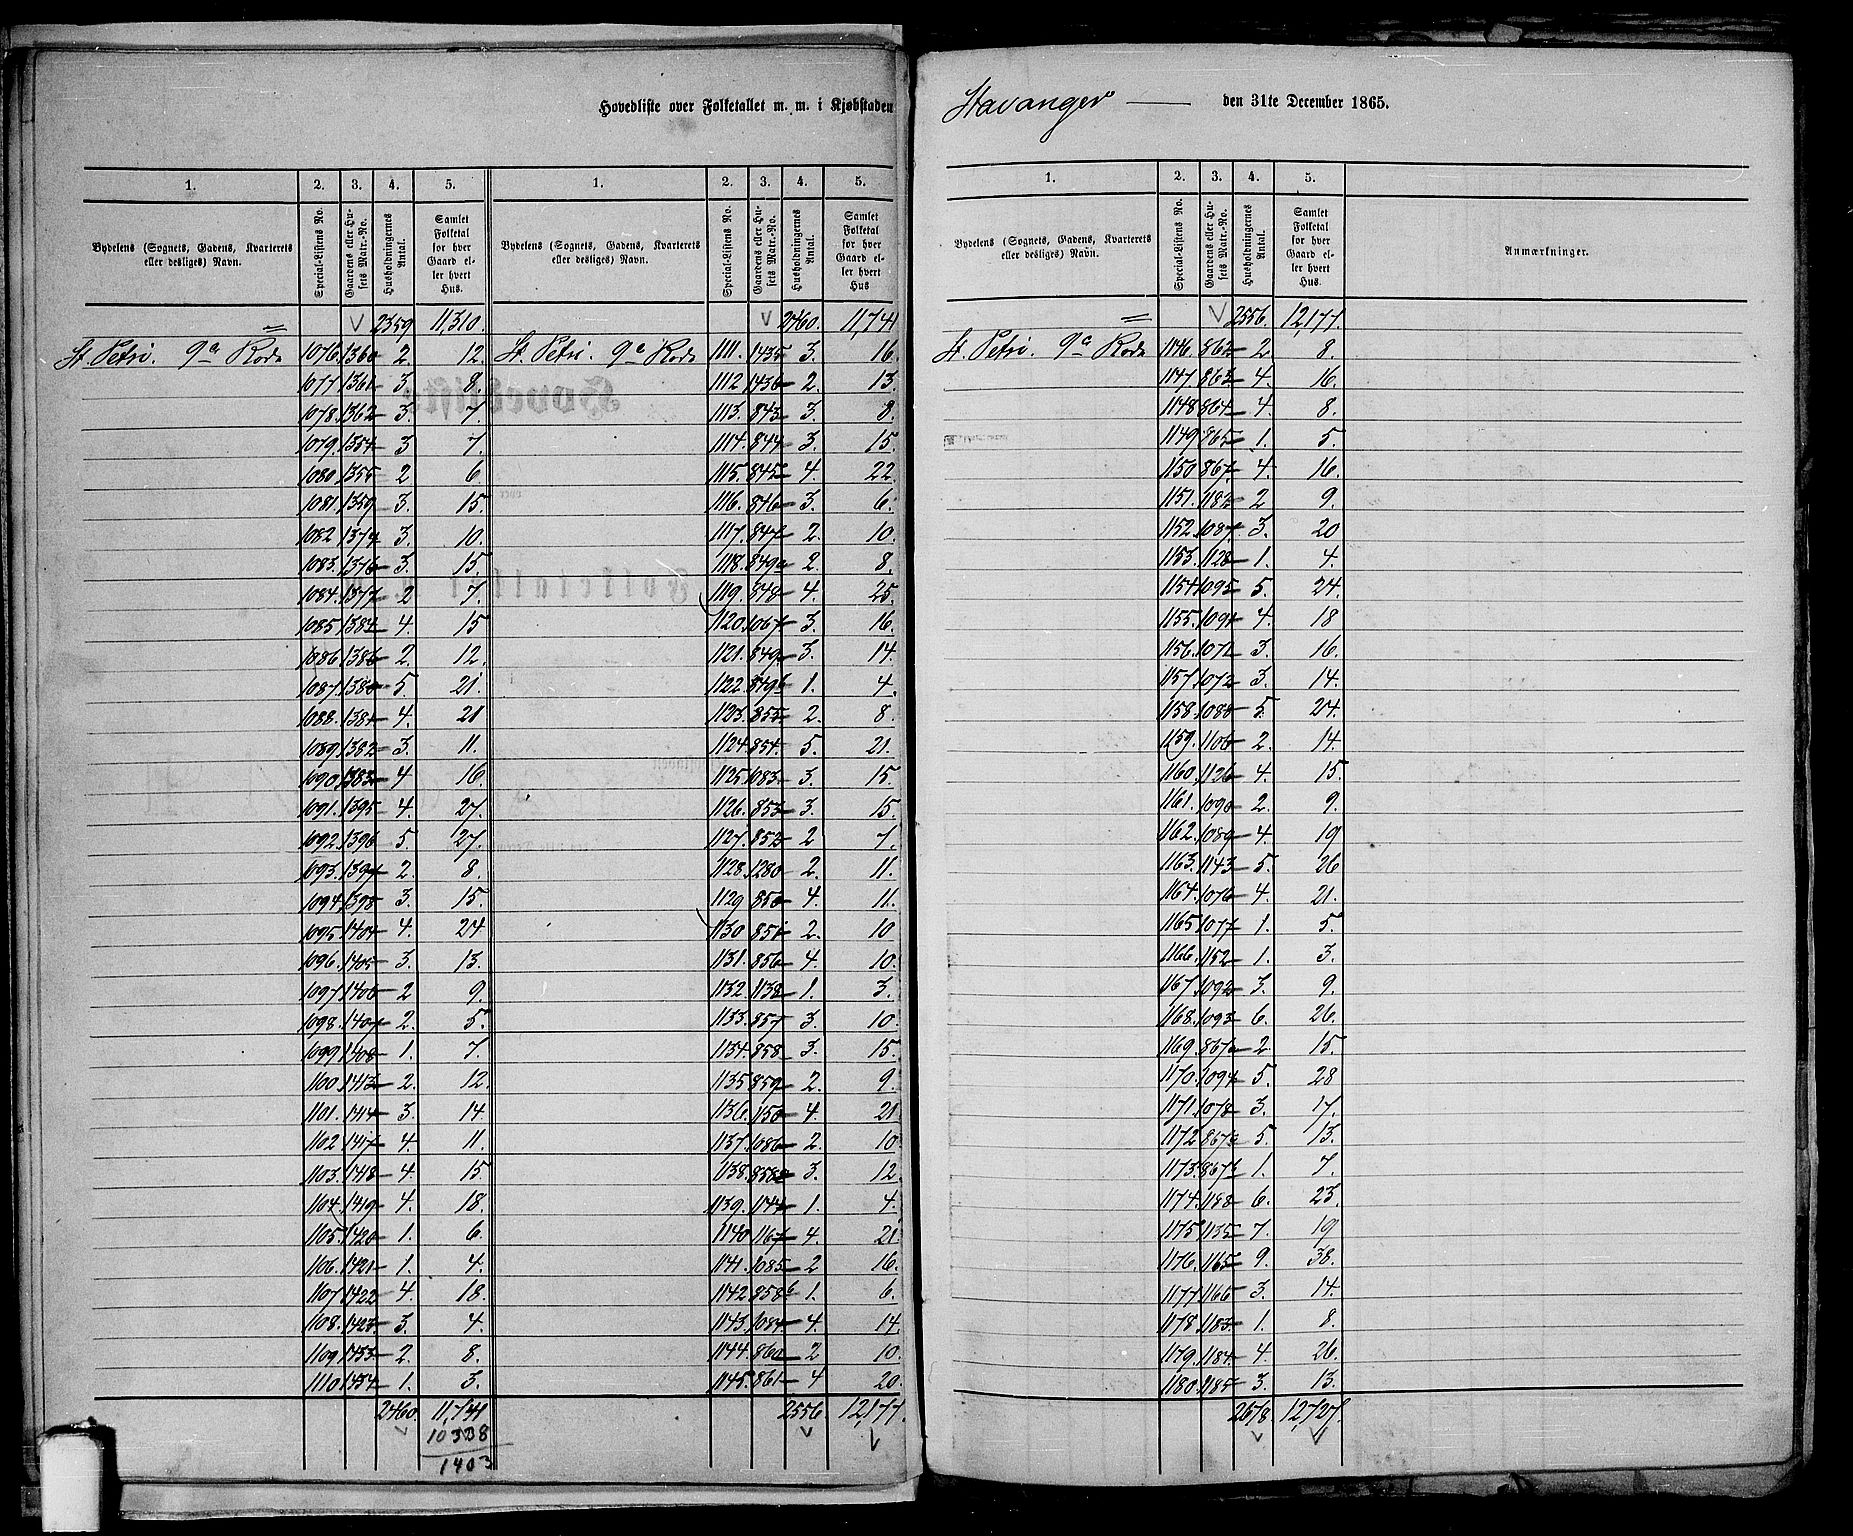 Hovedliste over Folketallet m. m. i Kjøbstaden Stavanger — den 31te December 1865.
1. 2. 3. 4. 5. 1. 2. 3. 4. 5.
Bydelens (Sognets, Gadens, Kvarterets eller desliges) Navn. Special-Listens No. Gaardens eller Husets Matr.-No. Husholdningernes Antal. Samlet Folketal for hver Gaard eller hvert Hus. Bydelens (Sognets, Gadens, Kvarterets eller desliges) Navn. Special-Listens No. Gaardens eller Husets Matr.-No. Husholdningernes Antal. Samlet Folketal for hver Gaard eller hvert Hus
2359 11,310. 2460. 11,741
St. Petri. 9a Rode 1076. 1360 2. 12. St. Petri. 9a Rode 1111. 1435 3. 16.
1077. 1361 3. 8. 1112 1436 2. 13.
1078. 1362 3. 7. 1113. 843 3. 8.
1079. 1354 3 7. 1114. 844 3. 15.
1080. 1355 2 6 1115. 845 4. 22.
1081. 1359 3. 15. 1116. 846 3. 6.
1082 1374 3. 10. 1117. 847 2. 10.
1083. 1376 3. 15. 1118. 849a 2. 8.
1084. 1377 2 7. 1119. 848 4. 25.
1085. 1384 4. 15 1120. 1067 3. 16.
1086. 1386 2. 12. 1121. 849 3. 14.
1087. 1380 5. 21. 1122. 849b 1. 4.
1088. 1381 4. 21 1123. 855 2. 8.
1089. 1382 3. 11. 1124. 854. 5. 21.
1090. 1383 4 16 1125. 1083 3. 15.
1091. 1395 4. 27. 1126. 853 3. 15.
1092. 1396 5. 27. 1127. 852 2 7.
1093. 1397 2. 8. 1128. 1280 2. 11.
1094. 1398 3. 15. 1129 850 4. 11.
1095. 1404 4. 24 1130 851 2. 10
1096. 1405 3. 13. 1131. 856 4. 10.
1097. 1406 2 9. 1132. 1138 1. 3.
1098. 1407 2. 5. 1133. 857 3. 10.
1099. 1408 1. 7. 1134. 858 3. 15.
1100. 1413 2. 12. 1135 859 2. 9.
1101. 1414 3. 14. 1136. 1150 4. 21
1102 1417 4. 11. 1137. 1086 2. 10.
1103. 1418 4. 15 1138. 858a 3. 12.
1104. 1419 4. 18. 1139. 1144 1. 4.
1105. 1420 1. 6 1140 1167 4. 21.
1106. 1421 1. 4. 1141. 1085 2 16.
1107. 1422 4. 18. 1142. 858b 1. 6.
1108. 1423 3. 4. 1143. 1084 4. 14.
1109. 1433 2. 8. 1144. 860 2 10.
1110 1434 1. 3. 1145. 861 4 20.
2460. 11,741 2556 12,177.
10338
1403
1. 2. 3. 4. 5.
Bydelens (Sognets, Gadens, Kvarterets eller desliges) Navn. Special-Listens No. Gaardens eller Husets Matr.-No. Husholdningernes Antal. Samlet Folketal for hver Gaard eller hvert Hus. Anmærkninger.
2556. 12,177.
St. Petri. 9a Rode 1146. 862 2 8.
1147. 863 4. 16.
1148. 864 4. 8.
1149. 865 1. 5.
1150 867 4. 16.
1151. 1182 2 9.
1152. 1087 3. 20
1153. 1128 1. 4.
1154. 1095 5. 24.
1155. 1091 4. 18
1156. 1071 3. 16.
1157. 1072 3. 14.
1158. 1088 5. 24.
1159. 1106 2. 14.
1160. 1126 4. 15.
1161. 1090 2. 9.
1162. 1089 4. 19
1163. 1143 5. 26
1164. 1076 4. 21.
1165. 1077 1. 5.
1166. 1152 1. 3.
1167. 1092 3. 9.
1168. 1093 6. 26.
1169. 867a 2. 15.
1170. 1094 5. 28
1171. 1078 3. 17.
1172 867a 5. 13.
1173. 867b 1. 7.
1174. 1188 6. 23
1175. 1135 7. 19
1176. 1165 9. 38.
1177. 1166 3. 14.
1178. 1183 1. 8.
1179. 1184 4. 26.
1180. 1185 3. 13.
2678 12,727.